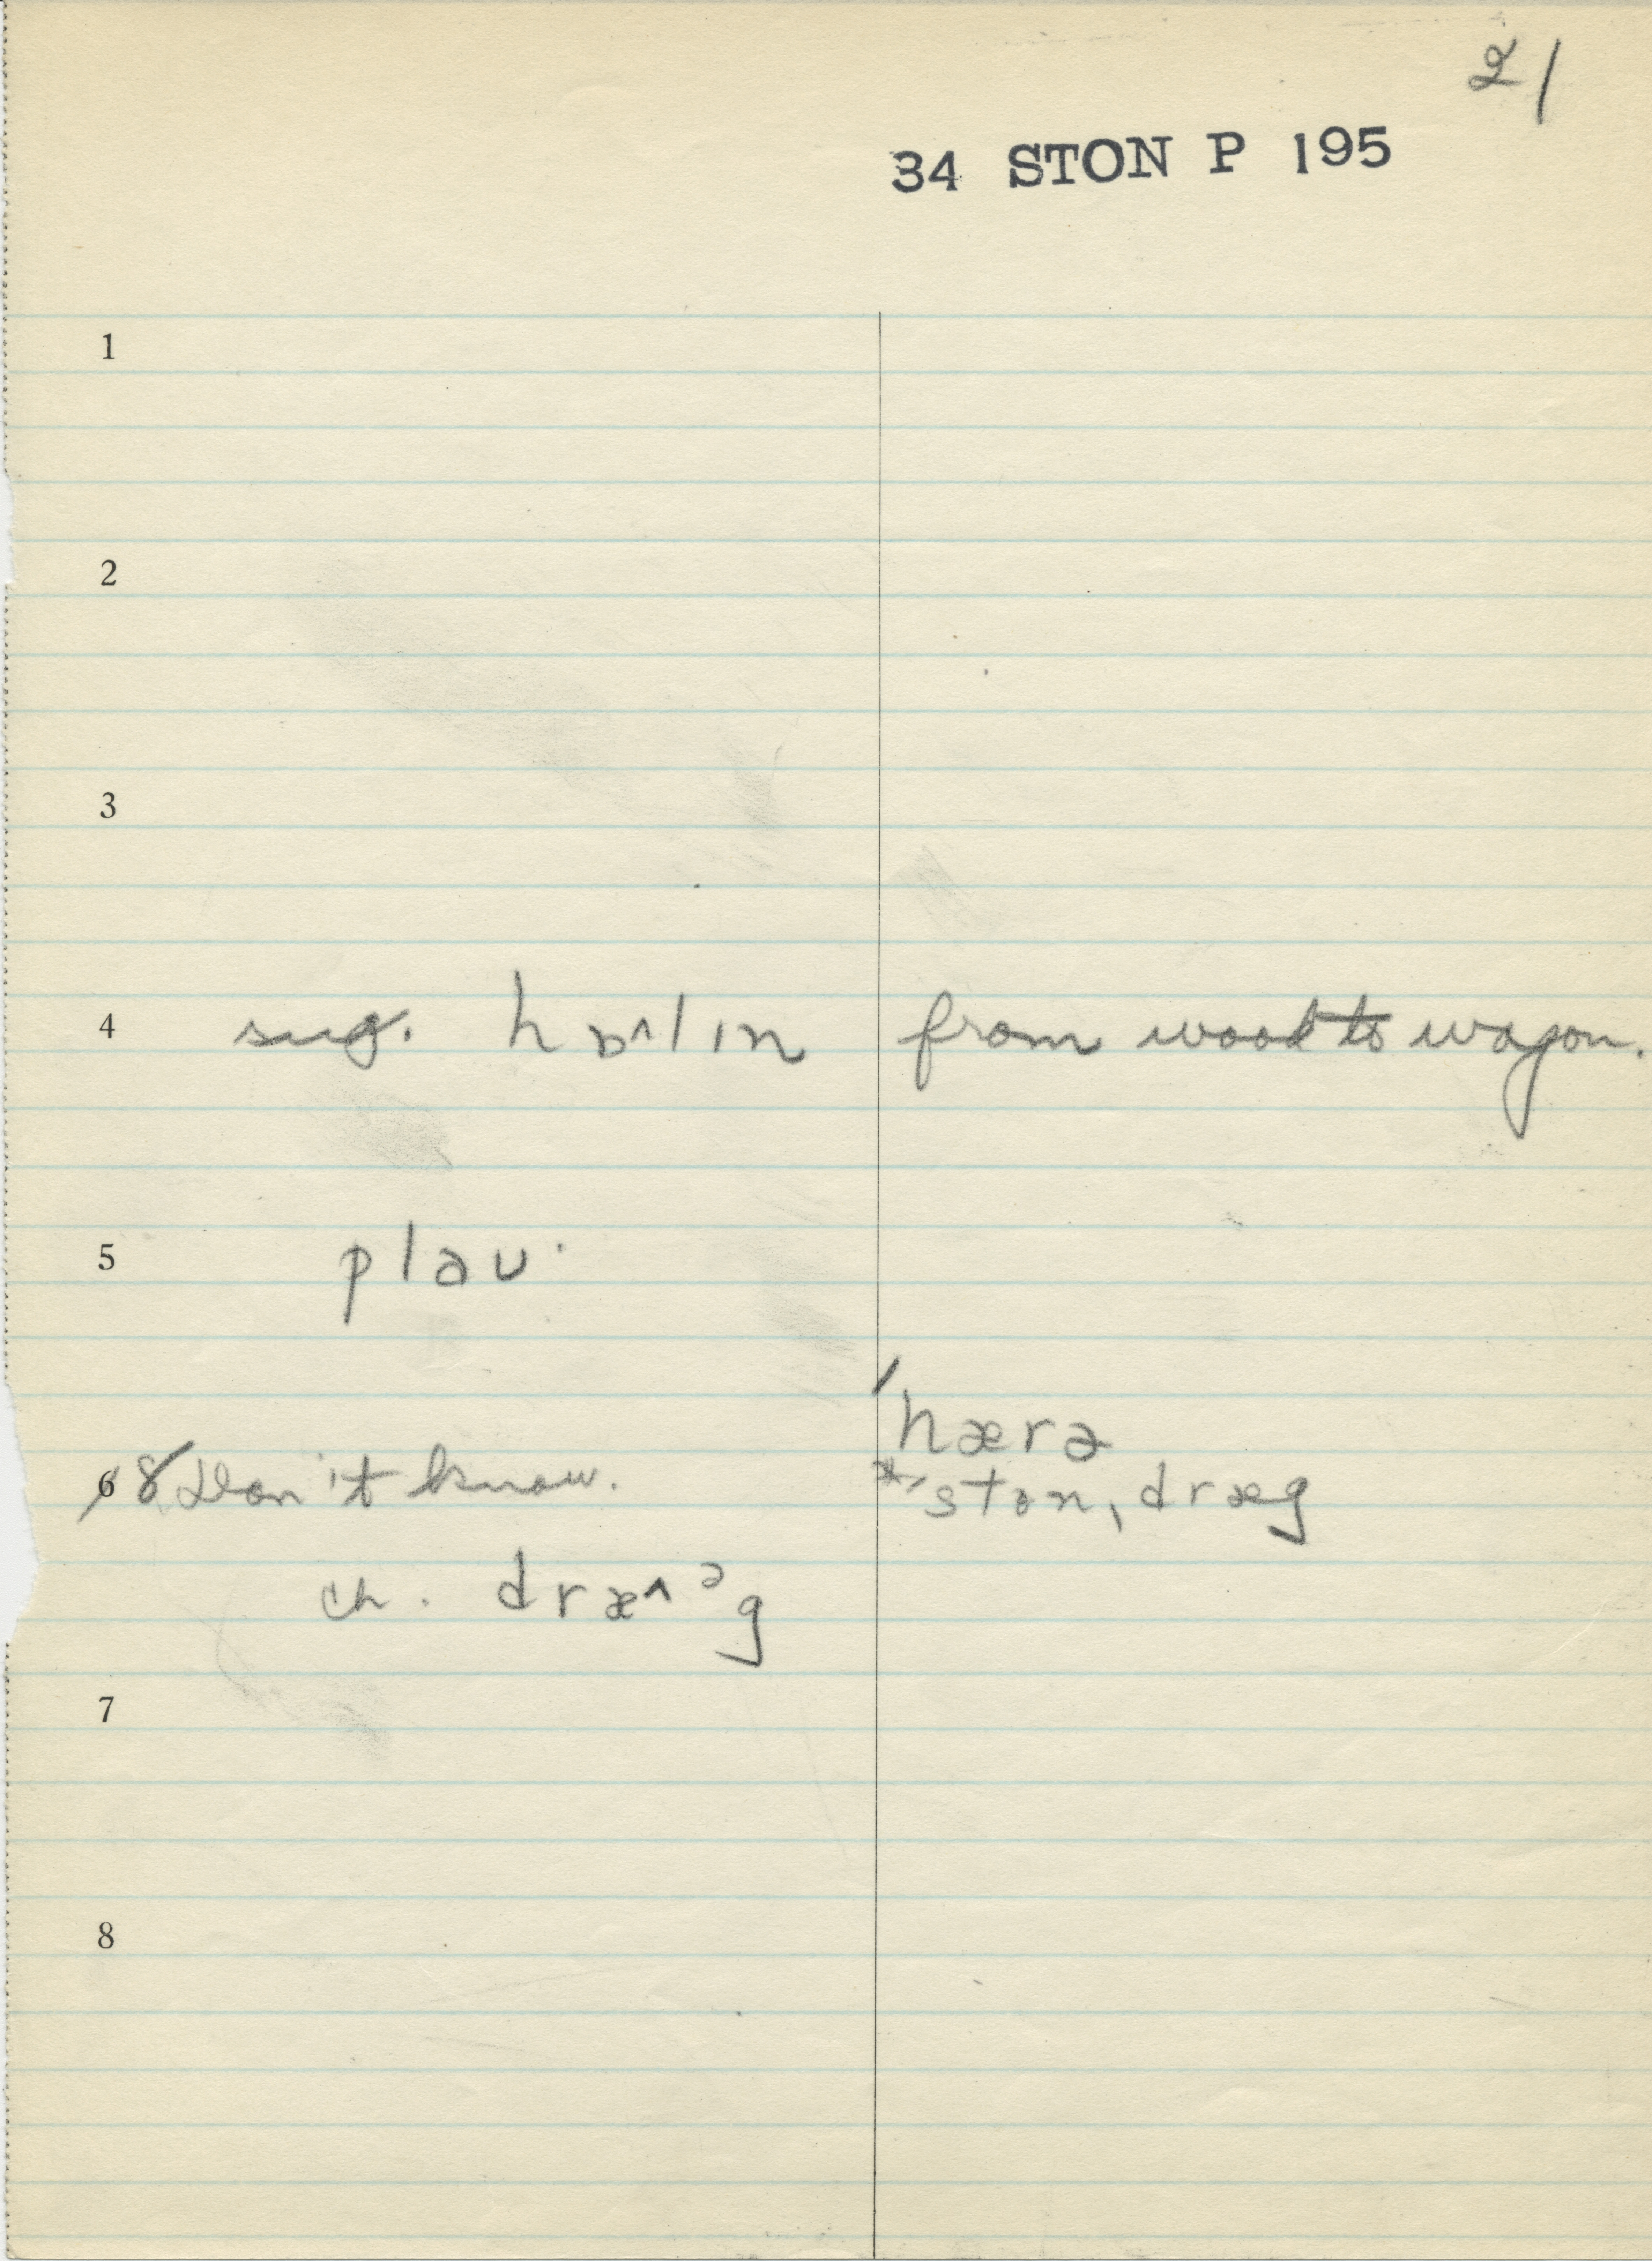 21
34 STON P 195
1
2
3
4 sug. hɒ^lɪn from wood to wagon.
5 plaʊ·
ˈhærə
6 8 Don't know. *ˈstonˌdræg
ch. dræ^ᵊg
7
8